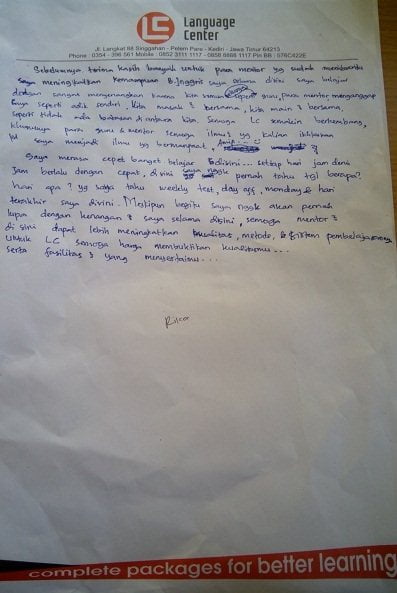 LC
Language
Center
Jl. Langkat 88 Singgahan - Pelem Pare - Kediri - Jawa Timur 64213
Phone : 0354 - 396 561 Mobile : 0852 3111 1117 - 0858 6888 1117 Pin BB : 576C422E
Sebelumnya terima kasih banyak untuk para mentor yg sudah membantu
saya meningkatkan kemampuan B.Inggris saya selama disini saya belajar
dengan sangat menyenangkan karena kita seperti guru, para mentor menganggap
saya seperti adik sendiri, kita masak 2 bersama, kita main 2 bersama,
seperti tidak ada batasan diantara kita. Semoga LC semakin berkembang,
khususnya para guru & mentor semoga ilmu 2 yg kalian ikhlaskan
saya menjadi ilmu yg bermanfaat,
Saya merasa cepet banget belajar disini... setiap hari jam demi
jam berlalu dengan cepat, disini saya nggk pernah tahu tgl berapa?
hari apa? yg saya tahu weekly test, day off, monday & hari
terakhir saya disini. Meskipun begitu saya nggk akan pernah
lupa dengan kenangan 2 saya selama disini, semoga mentor 2
di sini dapat lebih meningkatkan kualitas, metode, & sistem pembelajarannya
untuk LC semoga harga membuktikan kualitasmu...
serta fasilitas 2 yang menyertaimu...
complete packages for better learning